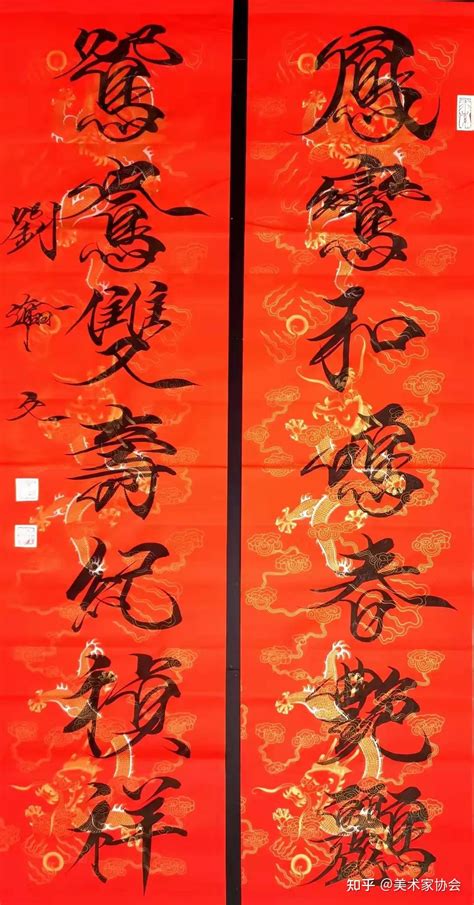 鳳鸞和鳴春艷
鴛鴦雙壽紀禎祥
劉瀚文
知乎 @美术家协会